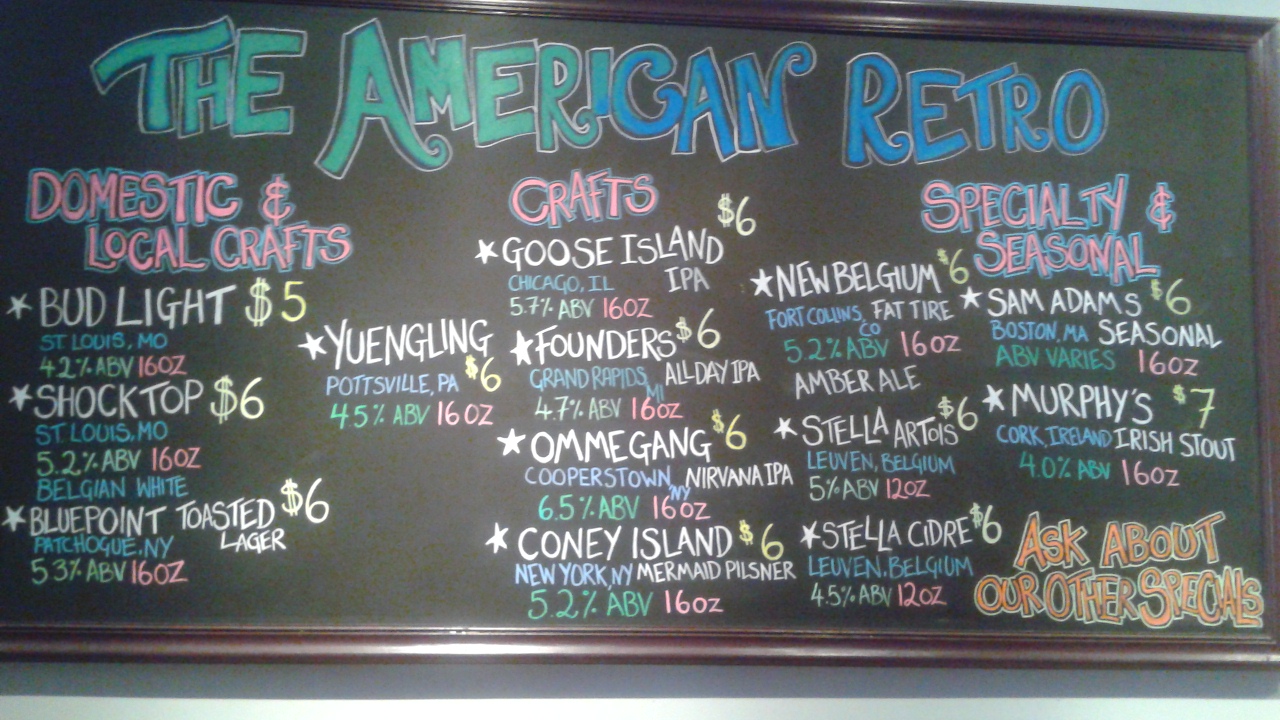 THE AMERICAN RETRO
DOMESTIC &
LOCAL CRAFTS
BUD LIGHT $5
ST LOUIS, MO
4.2% ABV 16OZ
SHOCKTOP $6
ST LOUIS, MO
5.2% ABV 16OZ
BELGIAN WHITE
BLUEPOINT TOASTED $6
LAGER
PATCHOGUE, NY
5.3% ABV 16OZ
YUENGLING
POTTSVILLE, PA $6
4.5% ABV 16OZ
CRAFTS
GOOSE ISLAND $6
CHICAGO, IL IPA
5.7% ABV 16OZ
FOUNDERS $6
GRAND RAPIDS, MI ALL DAY IPA
4.7% ABV 16OZ
OMMEGANG $6
COOPERSTOWN, NY NIRVANA IPA
6.5% ABV 16OZ
CONEY ISLAND $6
NEW YORK, NY MERMAID PILSNER
5.2% ABV 16OZ
NEW BELGIUM $6
FORT COLLINS, CO FAT TIRE
5.2% ABV 16OZ
AMBER ALE
STELLA ARTOIS $6
LEUVEN, BELGIUM
5% ABV 12OZ
STELLA CIDRE $6
LEUVEN, BELGIUM
4.5% ABV 12OZ
SPECIALTY &
SEASONAL
SAM ADAMS $6
BOSTON, MA SEASONAL
ABV VARIES 16OZ
MURPHY'S $7
CORK, IRELAND IRISH STOUT
4.0% ABV 16OZ
ASK ABOUT
OUR OTHER SPECIALS